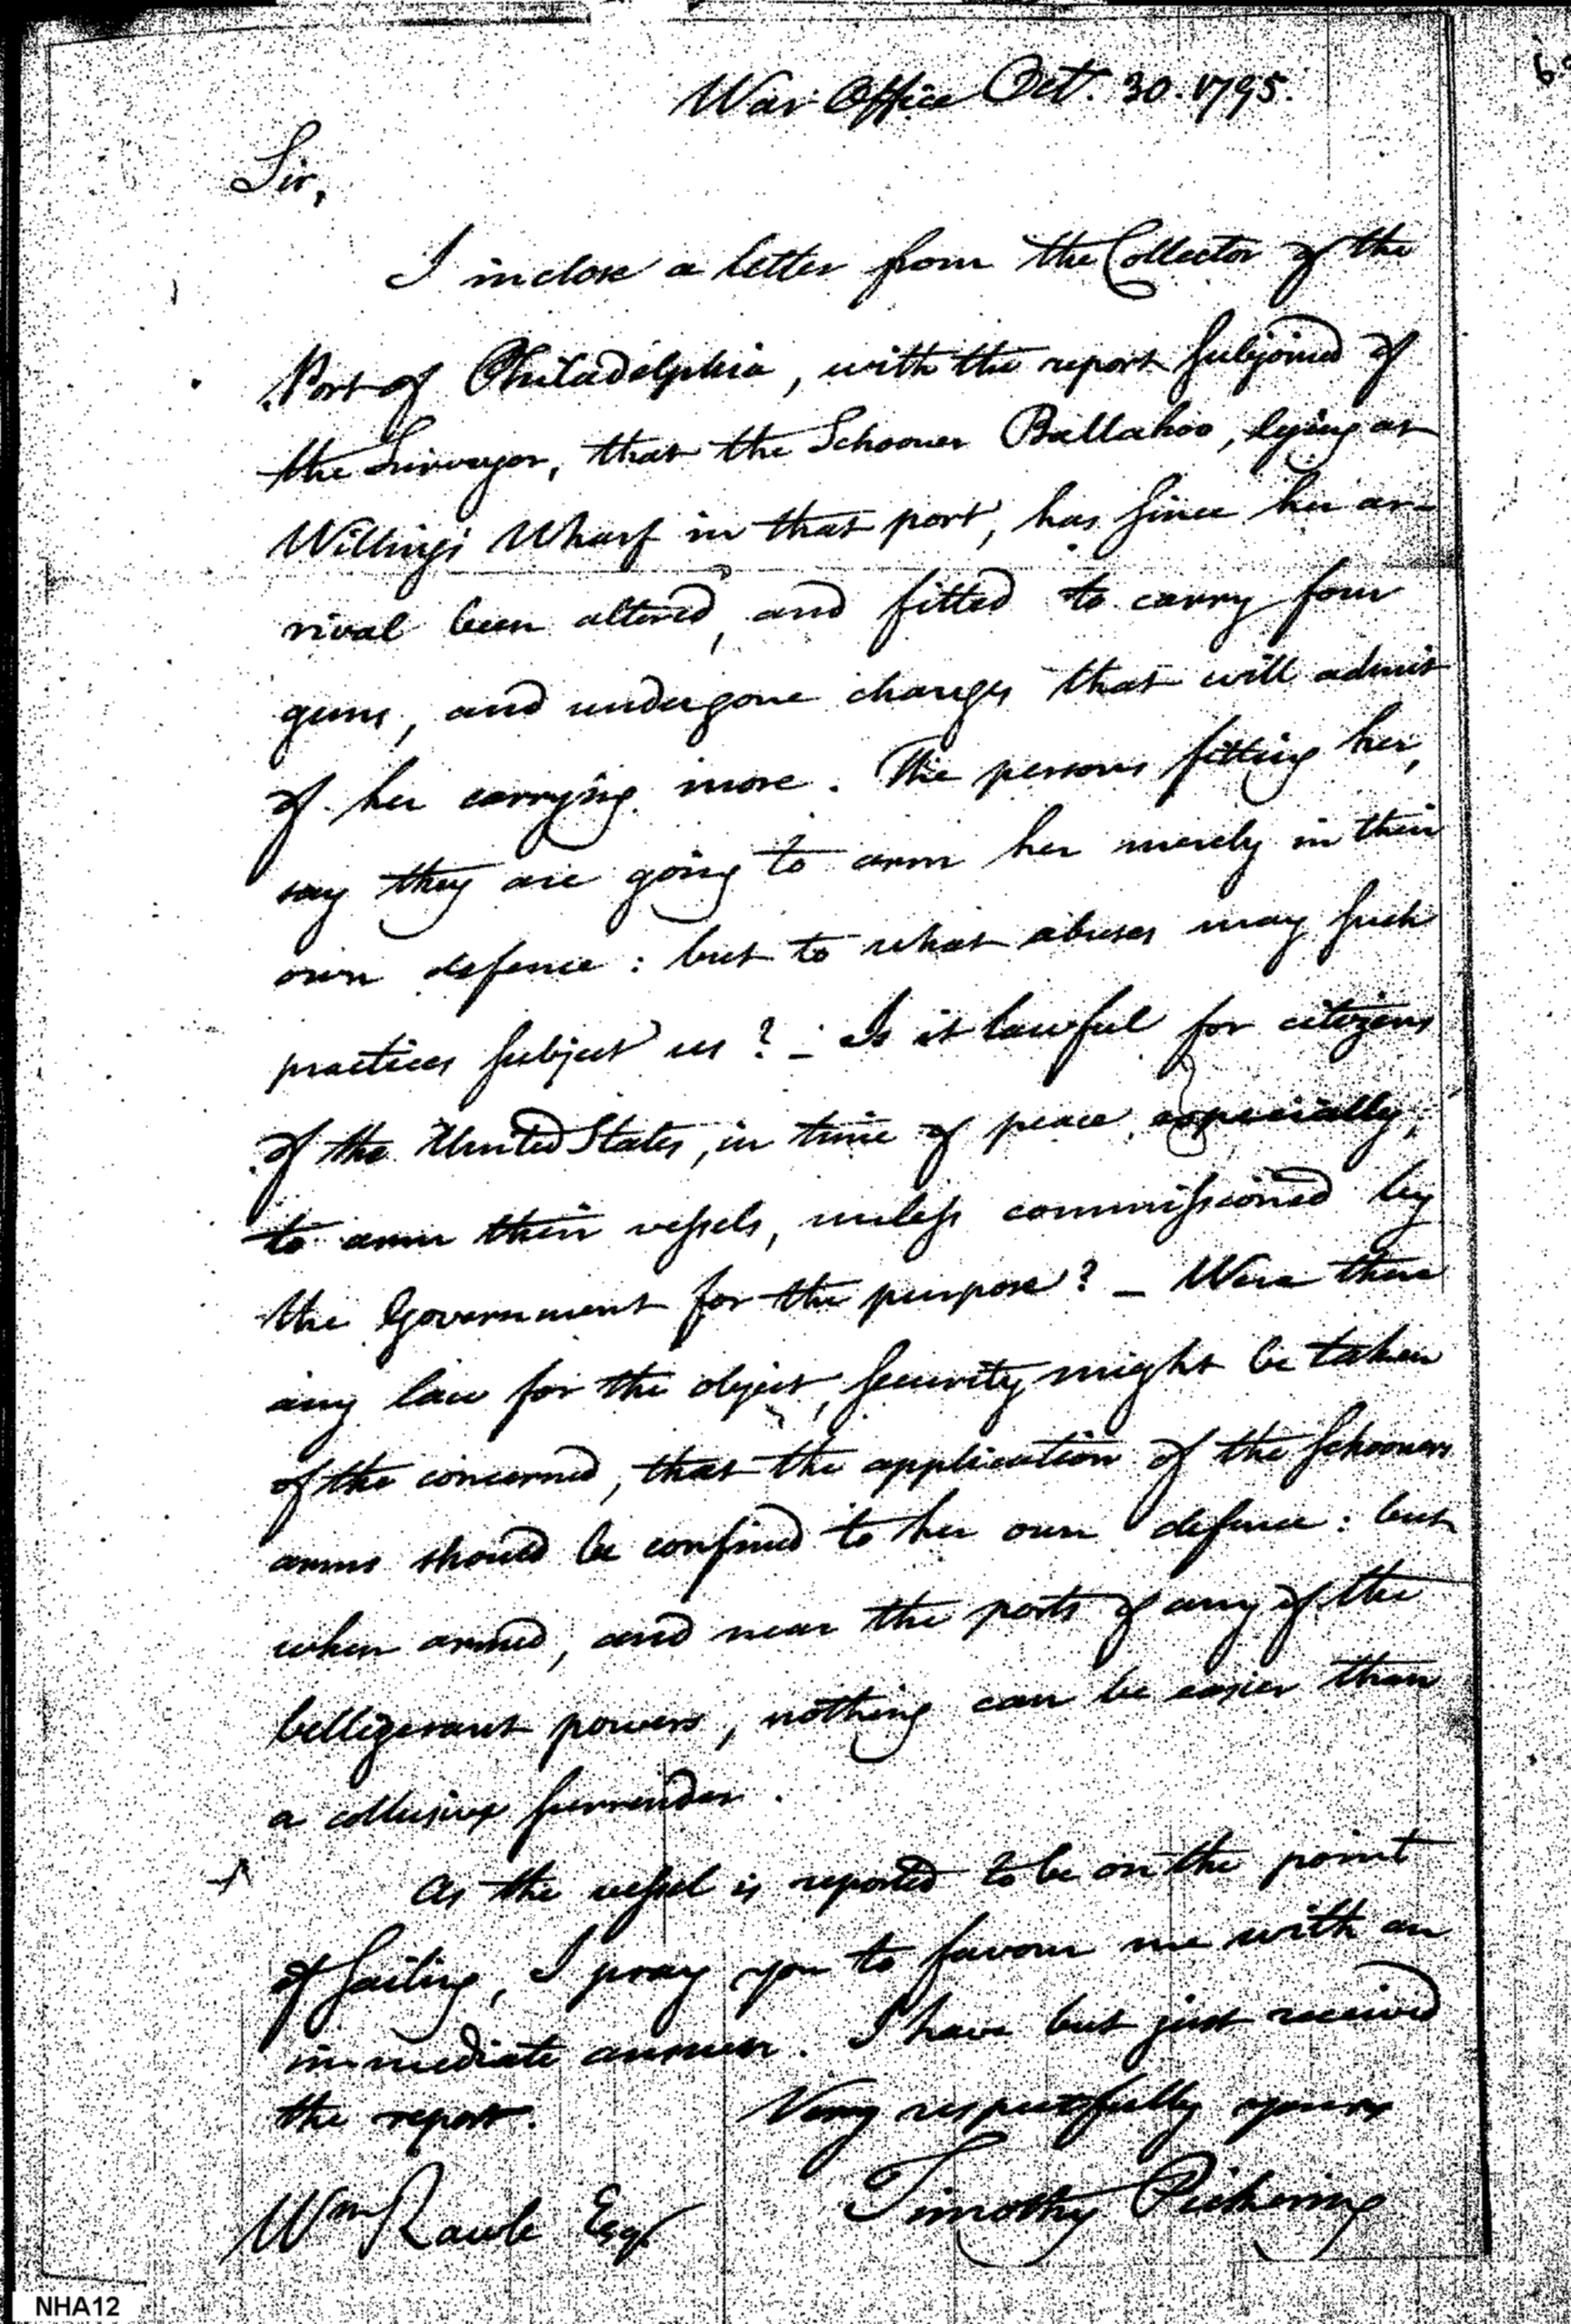 War Office Oct. 30. 1795.
Sir,
I inclose a letter from the Collector of the
Port of Philadelphia, with the report subjoined of
the Surveyor, that the Schooner Ballahoo, lying at
Willing's Wharf in that port, has since her ar-
rival been altered, and fitted to carry four
guns, and undergone changes that will admit
of her carrying more. The persons fitting her,
say they are going to arm her merely in their
own defence: but to what abuses may such
practices subject us? - Is it lawful for citizens
of the United States, in time of peace especially,
to arm their vessels, unless commissioned by
the Government for the purpose? - Were there
any law for the object, security might be taken
of the concerned, that the application of the schooners
arms should be confined to her own defence: but
when armed, and near the ports of any of the
belligerant powers, nothing can be easier than
a collusive surrender.
As the vessel is reported to be on the point
of sailing, I pray you to favour me with an
immediate answer. I have but just received
the report. Very respectfully yours
Timothy Pickering
Wm Rawle Esqr.
NHA12